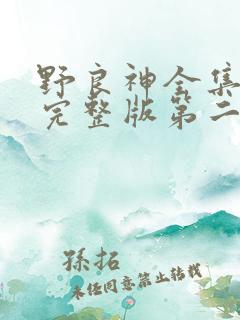 野良神全集
完整版第二
孫拓
未任同意禁止转载